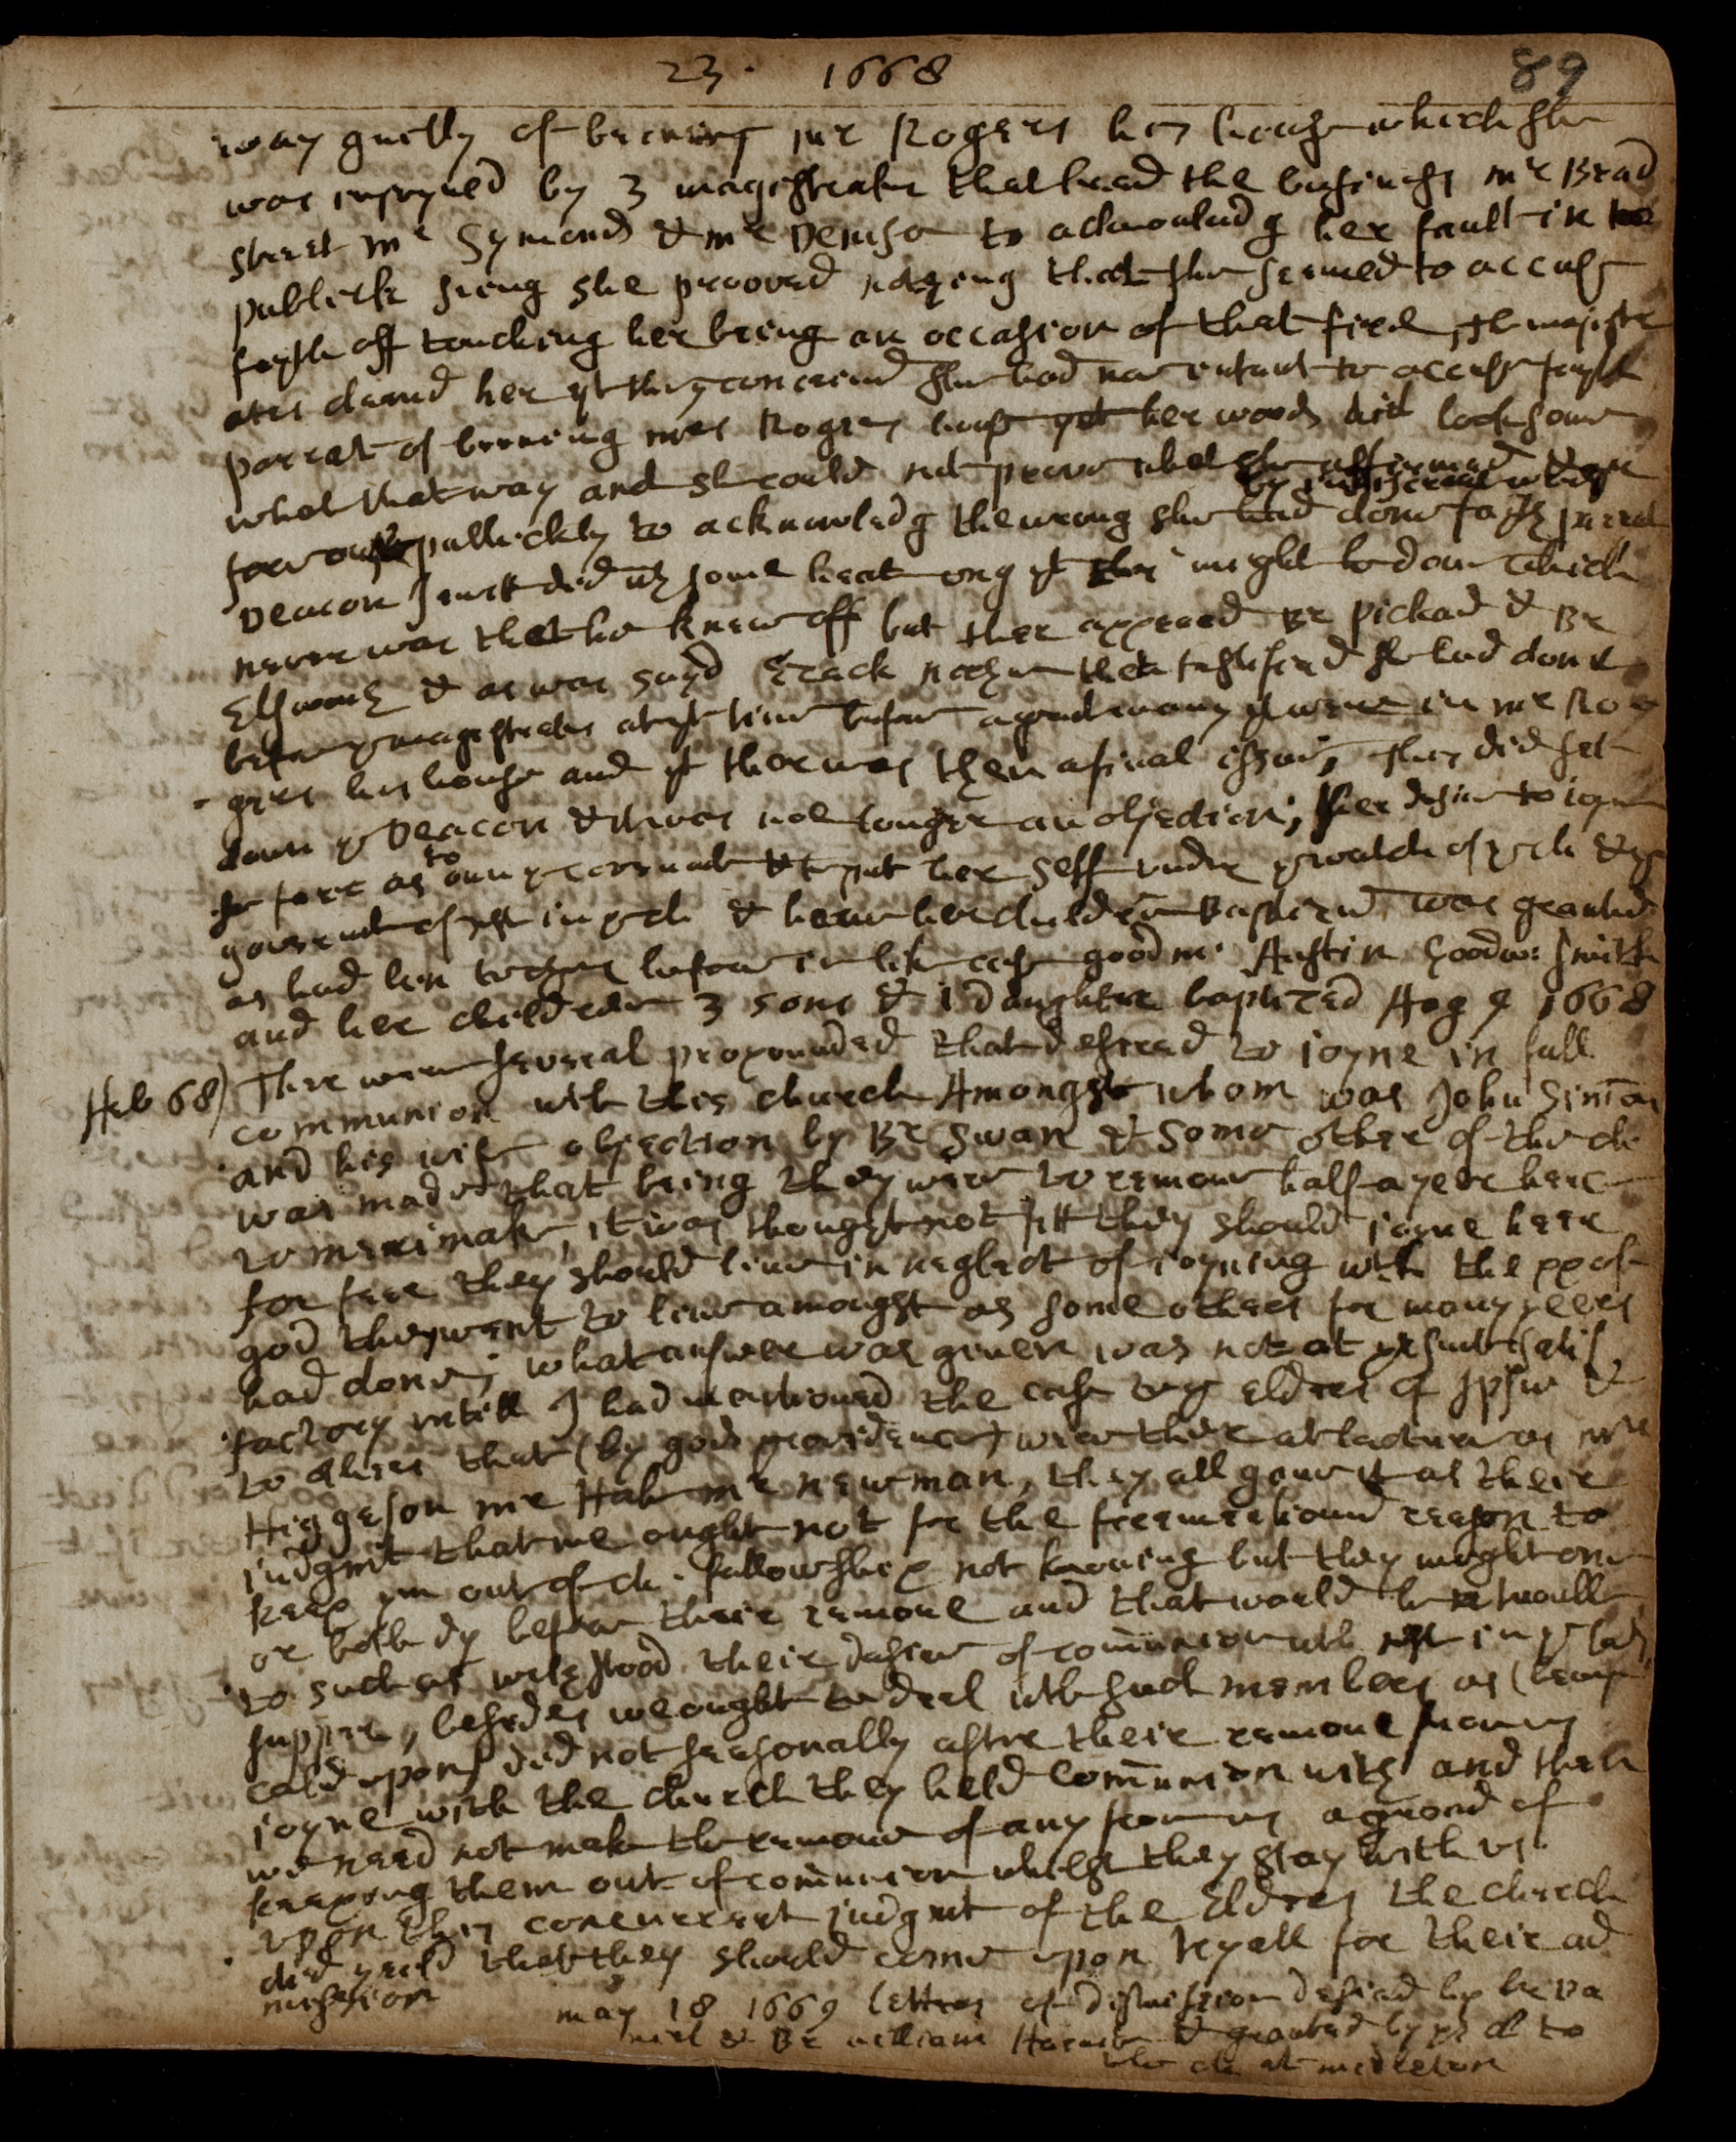 23. 1668 89
way guilty of burning mr Rogers his house which she
was inioyned by 3 magistrates that heard the busines mr Brad
street mr Symonds & mr Denison to acknowledg her fault in
publick seing she prooved nothing that she seemed to accuse
fayth off touching her being an occasion of that fire, the magistr
ates cleared her yt they conceived she had noe intent to accuse fayth
parrat of burning mr Rogers house yet her words did look some
what that way and she could not prove what she affirmed &
therefore publickly to acknowledg the wrong she had done fayth parrat
Deacon Jewit did wth some heat urg yt this might be done which
never was that he knew off but ther appeared Br Pickard & Br
Elsworth & as was sayd that testifyed she had done
before ye magistrates at yt time before a good many yt were in mr Ro
gers his house and yt ther was then a final issue, they did set
down ye Deacon & it was noe longer an objection; her desire to ioyne
so farr as to own ye covenant & to put her self under ye watch of ye ch & ye
government of xst in ye ch & have her children Baptized was granted
as had ben to others before in like case good m: Austin Goodw: Smith
and her children 3 sons & 1 daughter baptized Aug 9 1668
There were several propounded that desired to ioyne in full
communion with this church Amongst whom was John Simons
and his wife objection by Br Swan & some other of the ch
was made that being they were to remove half a yere hence
to merimak, it was thought not fitt they should ioyne here
for fere they should live in neglect of ioyning with the pp of
god they went to live amongst as some others for many yeers
had done; what answer was given was not at present satis
factory untill I had mentioned the case to ye eldres of Ipsw &
to others that (by gods providence) were there at lecture as mr
Higgeson mr Hale mr newman, they all gave it as their
iudgmt that we ought not for the forementioned reason to
keep ym out of ch. fellowship not knowing but they might one
or both dy before their remove and that would be a trouble
to such as withstood their desire of communion with xst in ye lords
supper, besides we ought to deal with such members as (being
cald upon) did not seasonally after their remove
ioyne with the church they held communion with and then
we need not make the remove of any from us a ground of
keeping them out of communion whilst they stay with us
upon this concurrent iudgmt of the Eldres the church
did yeeld that they should come upon tryall for their ad
mission
may 18 1669 letters of dismission desired by br Da
niel & Br william & granted by ye ch to
the ch at